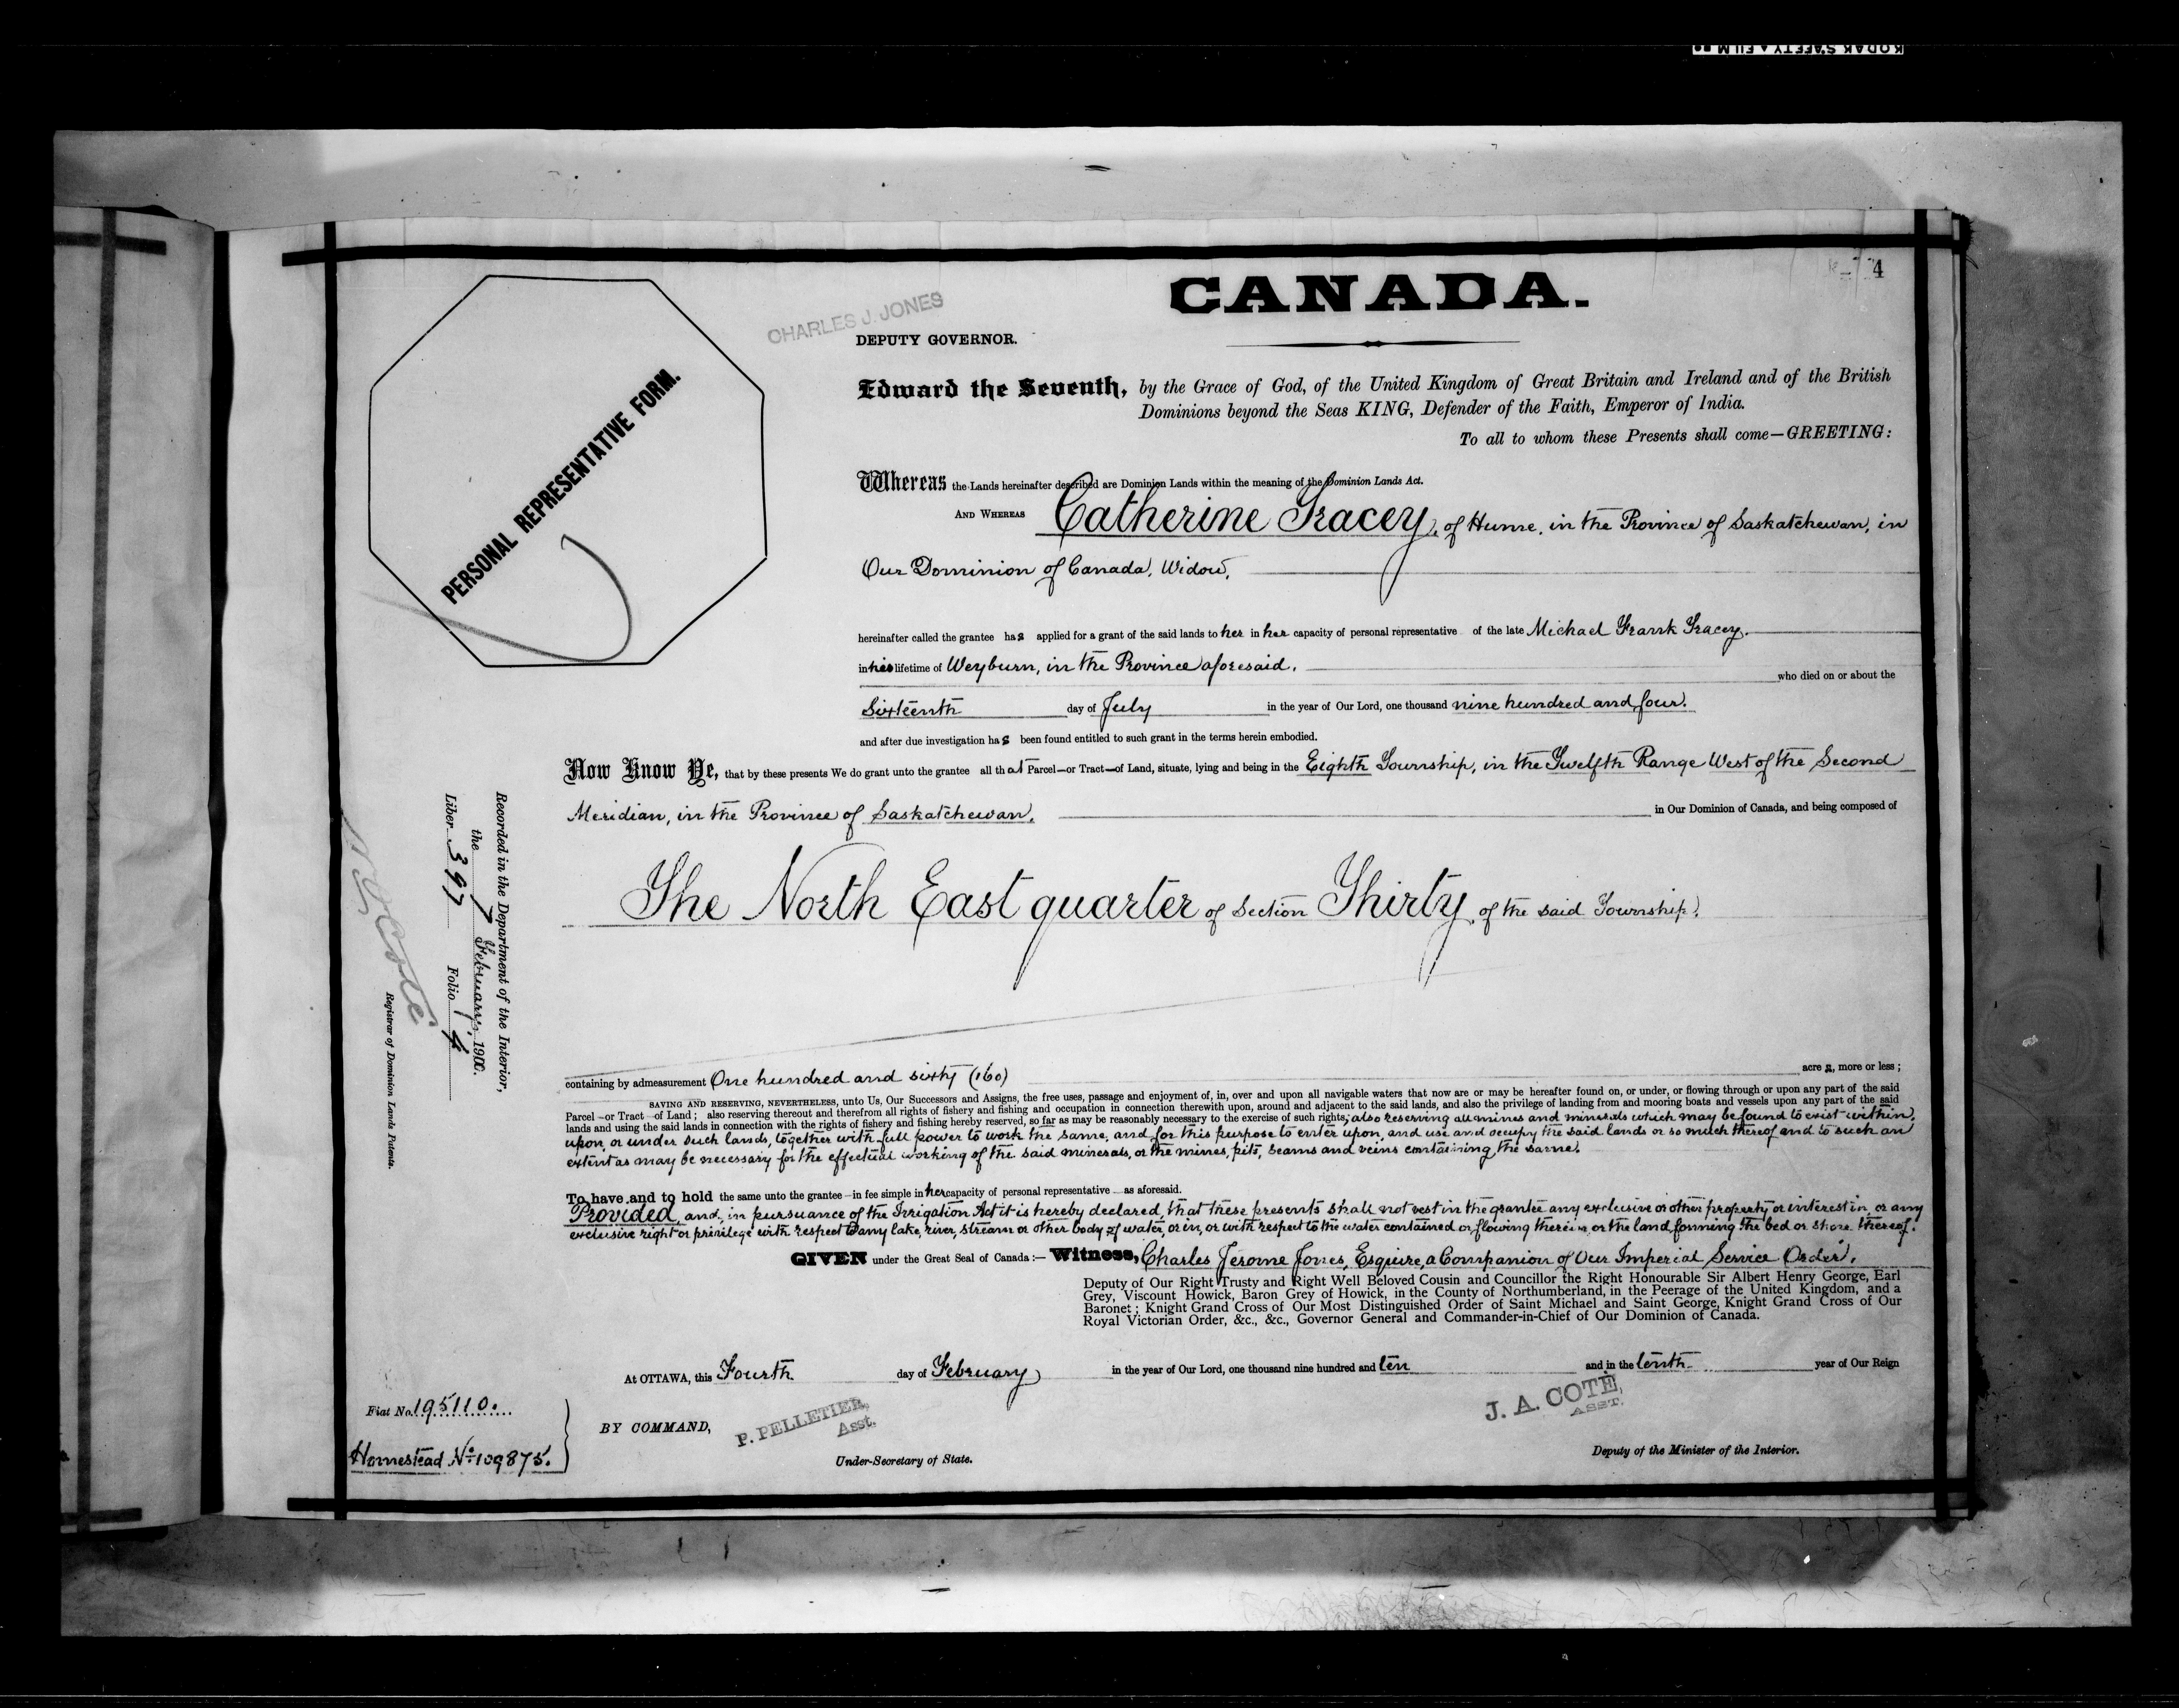 KODAK SAFETY FILM
4
CANADA.
CHARLES J. JONES
DEPUTY GOVERNOR.
PERSONAL REPRESENTATIVE FORM.
Edward the Seventh, by the Grace of God, of the United Kingdom of Great Britain and Ireland and of the British
Dominions beyond the Seas KING, Defender of the Faith, Emperor of India.
To all to whom these Presents shall come—GREETING:
Whereas the Lands hereinafter described are Dominion Lands within the meaning of the Dominion Lands Act.
AND WHEREAS Catherine Tracey, of Hume, in the Province of Saskatchewan, in
Our Dominion of Canada, Widow,
hereinafter called the grantee has applied for a grant of the said lands to her in her capacity of personal representative of the late Michael Frank Tracey.
in his lifetime of Weyburn, in the Province aforesaid,
who died on or about the
Sixteenth day of July in the year of Our Lord, one thousand nine hundred and four.
and after due investigation has been found entitled to such grant in the terms herein embodied.
Now Know Ye, that by these presents We do grant unto the grantee all that Parcel—or Tract—of Land, situate, lying and being in the Eighth Township, in the Twelfth Range West of the Second
Meridian, in the Province of Saskatchewan, in Our Dominion of Canada, and being composed of
The North East quarter of Section Thirty, of the said Township.
containing by admeasurement One hundred and sixty (160) acres, more or less;
SAVING AND RESERVING, NEVERTHELESS, unto Us, Our Successors and Assigns, the free uses, passage and enjoyment of, in, over and upon all navigable waters that now are or may be hereafter found on, or under, or flowing through or upon any part of the said
Parcel—or Tract—of Land; also reserving thereout and therefrom all rights of fishery and fishing and occupation in connection therewith upon, around and adjacent to the said lands, and also the privilege of landing from and mooring boats and vessels upon any part of the said
lands and using the said lands in connection with the rights of fishery and fishing hereby reserved, so far as may be reasonably necessary to the exercise of such rights; also reserving all mines and minerals which may be found to exist within,
upon, or under such lands, together with full power to work the same, and for this purpose to enter upon, and use and occupy the said lands or so much thereof and to such an
extent as may be necessary for the effectual working of the said minerals, or the mines, pits, seams and veins containing the same.
To have and to hold the same unto the grantee—in fee simple in her capacity of personal representative—as aforesaid.
Provided, and, in pursuance of the Irrigation Act it is hereby declared, that these presents shall not vest in the grantee any exclusive or other property or interest in, or any
exclusive right or privilege with respect to any lake, river, stream or other body of water, or in, or with respect to the water contained or flowing therein, or the land forming the bed or shore thereof.
GIVEN under the Great Seal of Canada:— Witness, Charles Jerome Jones, Esquire, a Companion of Our Imperial Service Order,
Deputy of Our Right Trusty and Right Well Beloved Cousin and Councillor the Right Honourable Sir Albert Henry George, Earl
Grey, Viscount Howick, Baron Grey of Howick, in the County of Northumberland, in the Peerage of the United Kingdom, and a
Baronet; Knight Grand Cross of Our Most Distinguished Order of Saint Michael and Saint George, Knight Grand Cross of Our
Royal Victorian Order, &c., &c., Governor General and Commander-in-Chief of Our Dominion of Canada.
At OTTAWA, this Fourth day of February in the year of Our Lord, one thousand nine hundred and ten and in the tenth year of Our Reign
BY COMMAND,
P. PELLETIER,
Asst.
Under-Secretary of State.
J. A. COTÉ,
ASST.
Deputy of the Minister of the Interior.
Fiat No. 195110.
Homestead No. 109875.
Recorded in the Department of the Interior,
the 7 February, 1910.
Liber 397 Folio 4
Registrar of Dominion Lands Patents.